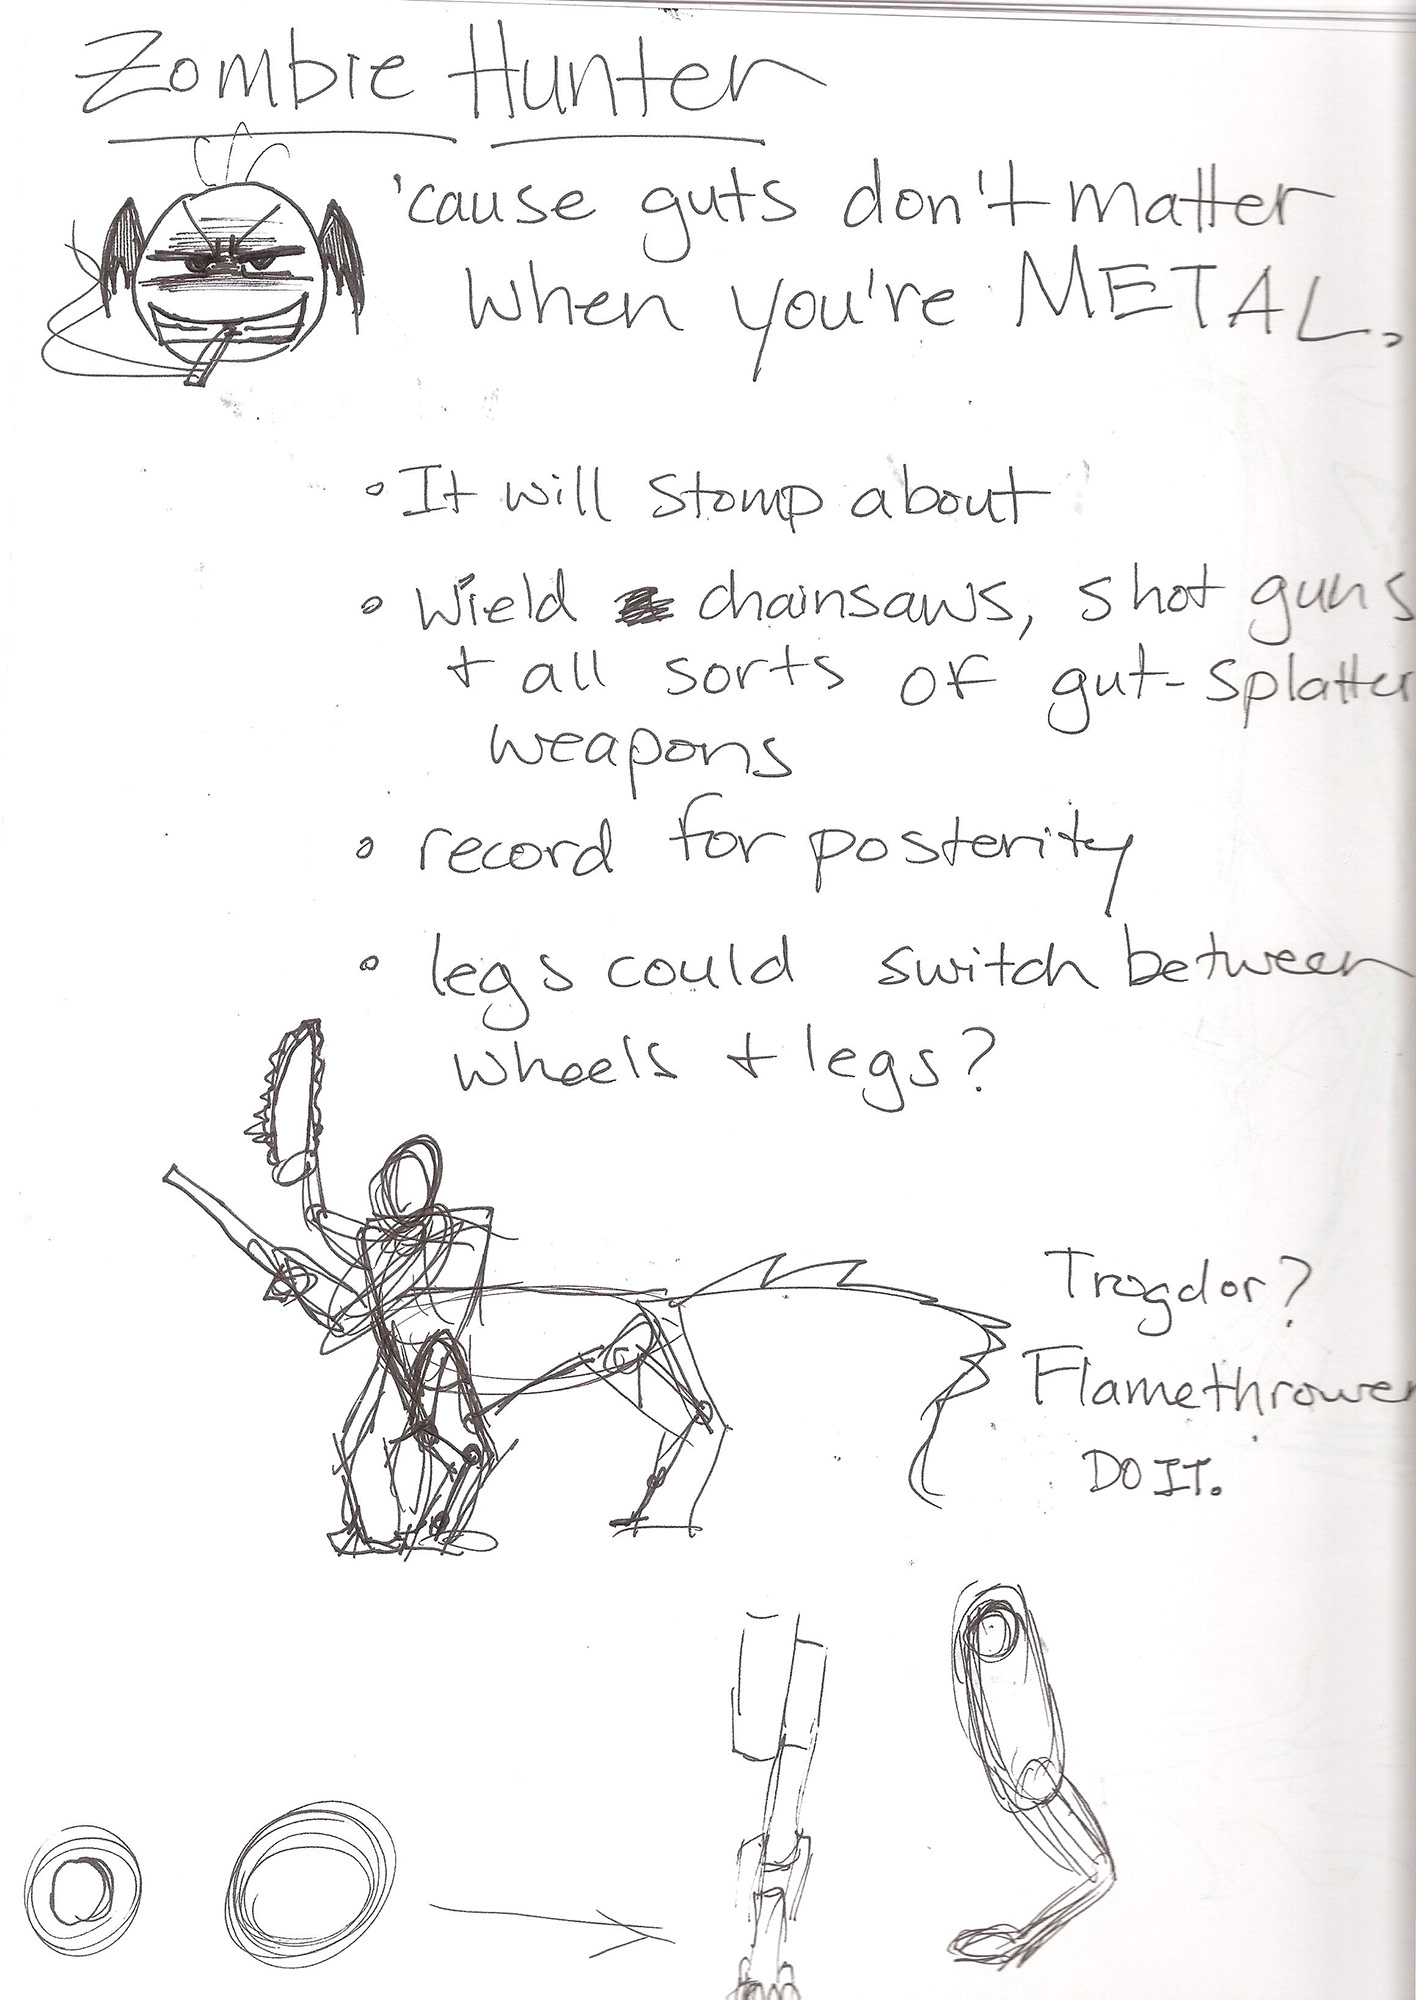 Zombie Hunter
'cause guts don't matter
when you're METAL.
• It will stomp about
• Wield chainsaws, shot guns
+ all sorts of gut-splatter
weapons
• record for posterity
• legs could switch between
wheels + legs?
Trogdor?
Flamethrower
DO IT.